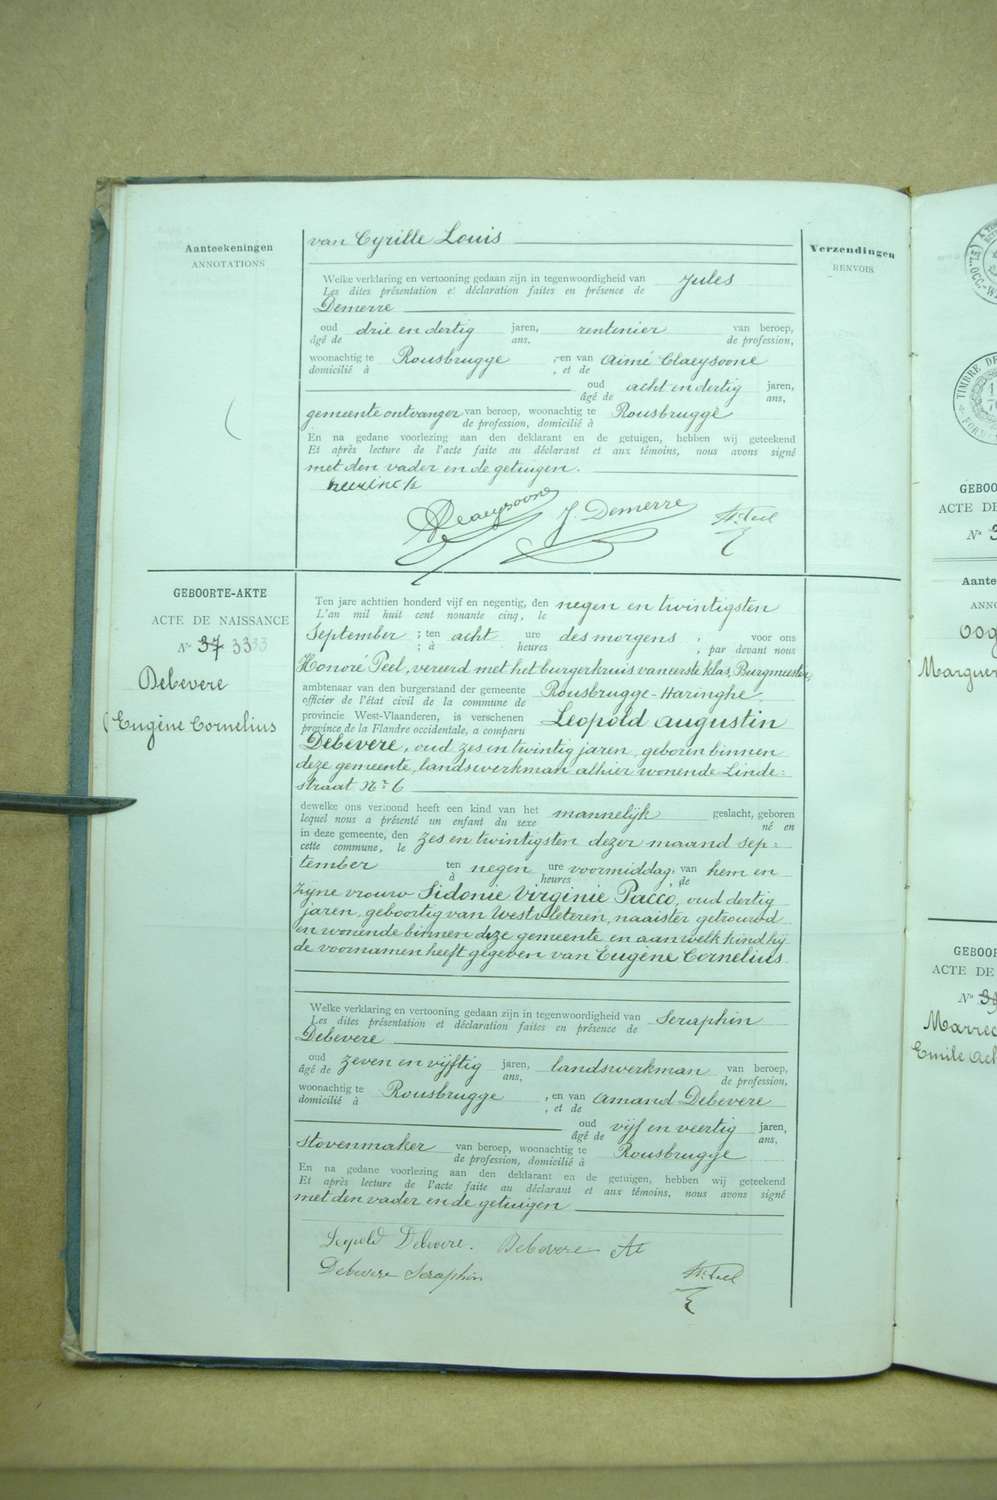 Aanteekeningen
ANNOTATIONS
Verzendingen
RENVOIS
van Cyrille Louis
Welke verklaring en vertooning gedaan zijn in tegenwoordigheid van Jules
Les dites présentation et déclaration faites en présence de
Demerre
oud drie en dertig jaren, rentenier van beroep,
âgé de ans, de profession,
woonachtig te Rousbrugge , en van Aimé Claeysoone
domicilié à , et de
oud acht en dertig jaren,
âgé de ans,
gemeente ontvanger van beroep, woonachtig te Rousbrugge
de profession, domicilié à
En na gedane voorlezing aan den deklarant en de getuigen, hebben wij geteekend
Et après lecture de l'acte faite au déclarant et aux témoins, nous avons signé
met den vader en de getuigen.
Claeysoone J. Demerre H. Peel
GEBOORTE-AKTE
ACTE DE NAISSANCE
N° 37 33 33
Debevere
Eugène Cornelius
Ten jare achttien honderd vijf en negentig, den negen en twintigsten
L'an mil huit cent nonante cinq, le
September ; ten acht ure des morgens ; voor ons
; à heures ; par devant nous
Honoré Peel, vereerd met het burgerkruis van eerste klas, Burgmeester,
ambtenaar van den burgerstand der gemeente Rousbrugge-Haringhe,
officier de l'état civil de la commune de
provincie West-Vlaanderen, is verschenen Leopold Augustin
province de la Flandre occidentale, a comparu
Debevere, oud zes en twintig jaren, geboren binnen
deze gemeente, landswerkman alhier wonende Linde-
straat Nr 6
dewelke ons vertoond heeft een kind van het mannelijk geslacht, geboren
lequel nous a présenté un enfant du sexe né en
in deze gemeente, den zes en twintigsten dezer maand Sep-
cette commune, le
tember ten negen ure voormiddag, van hem en
à heures , de
zijne vrouw Sidonie Virginie Pacco, oud dertig
jaren, geboortig van Westvleteren, naaister getrouwd
en wonende binnen deze gemeente en aan welk kind hij
de voornamen heeft gegeven van Eugène Cornelius.
Welke verklaring en vertooning gedaan zijn in tegenwoordigheid van Seraphin
Les dites présentation et déclaration faites en présence de
Debevere
oud zeven en vijftig jaren, landswerkman van beroep,
âgé de ans, de profession,
woonachtig te Rousbrugge , en van Amand Debevere
domicilié à , et de
oud vijf en veertig jaren,
âgé de ans,
stovenmaker van beroep, woonachtig te Rousbrugge
de profession, domicilié à
En na gedane voorlezing aan den deklarant en de getuigen, hebben wij geteekend
Et après lecture de l'acte faite au déclarant et aux témoins, nous avons signé
met den vader en de getuigen
Leopold Debevere. Debevere At
Debevere Seraphin H. Peel
TIMBRE DE
GEBOO
ACTE DE
N°
Aante
ANNO
Marguer
GEBOO
ACTE DE
N°
Emile